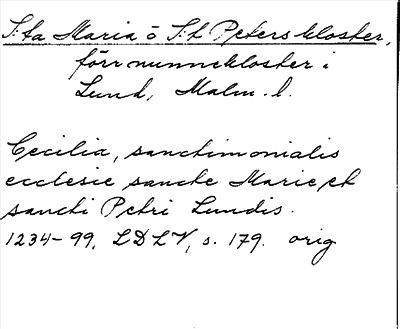 S:ta Maria o S:t Peters kloster,
förr nunnekloster i
Lund, Malm. l.
Cecilia, sanctimonialis
ecclesie sancte Marie et
sancti Petri Lundis.
1234-99, LDLV, s. 179. orig